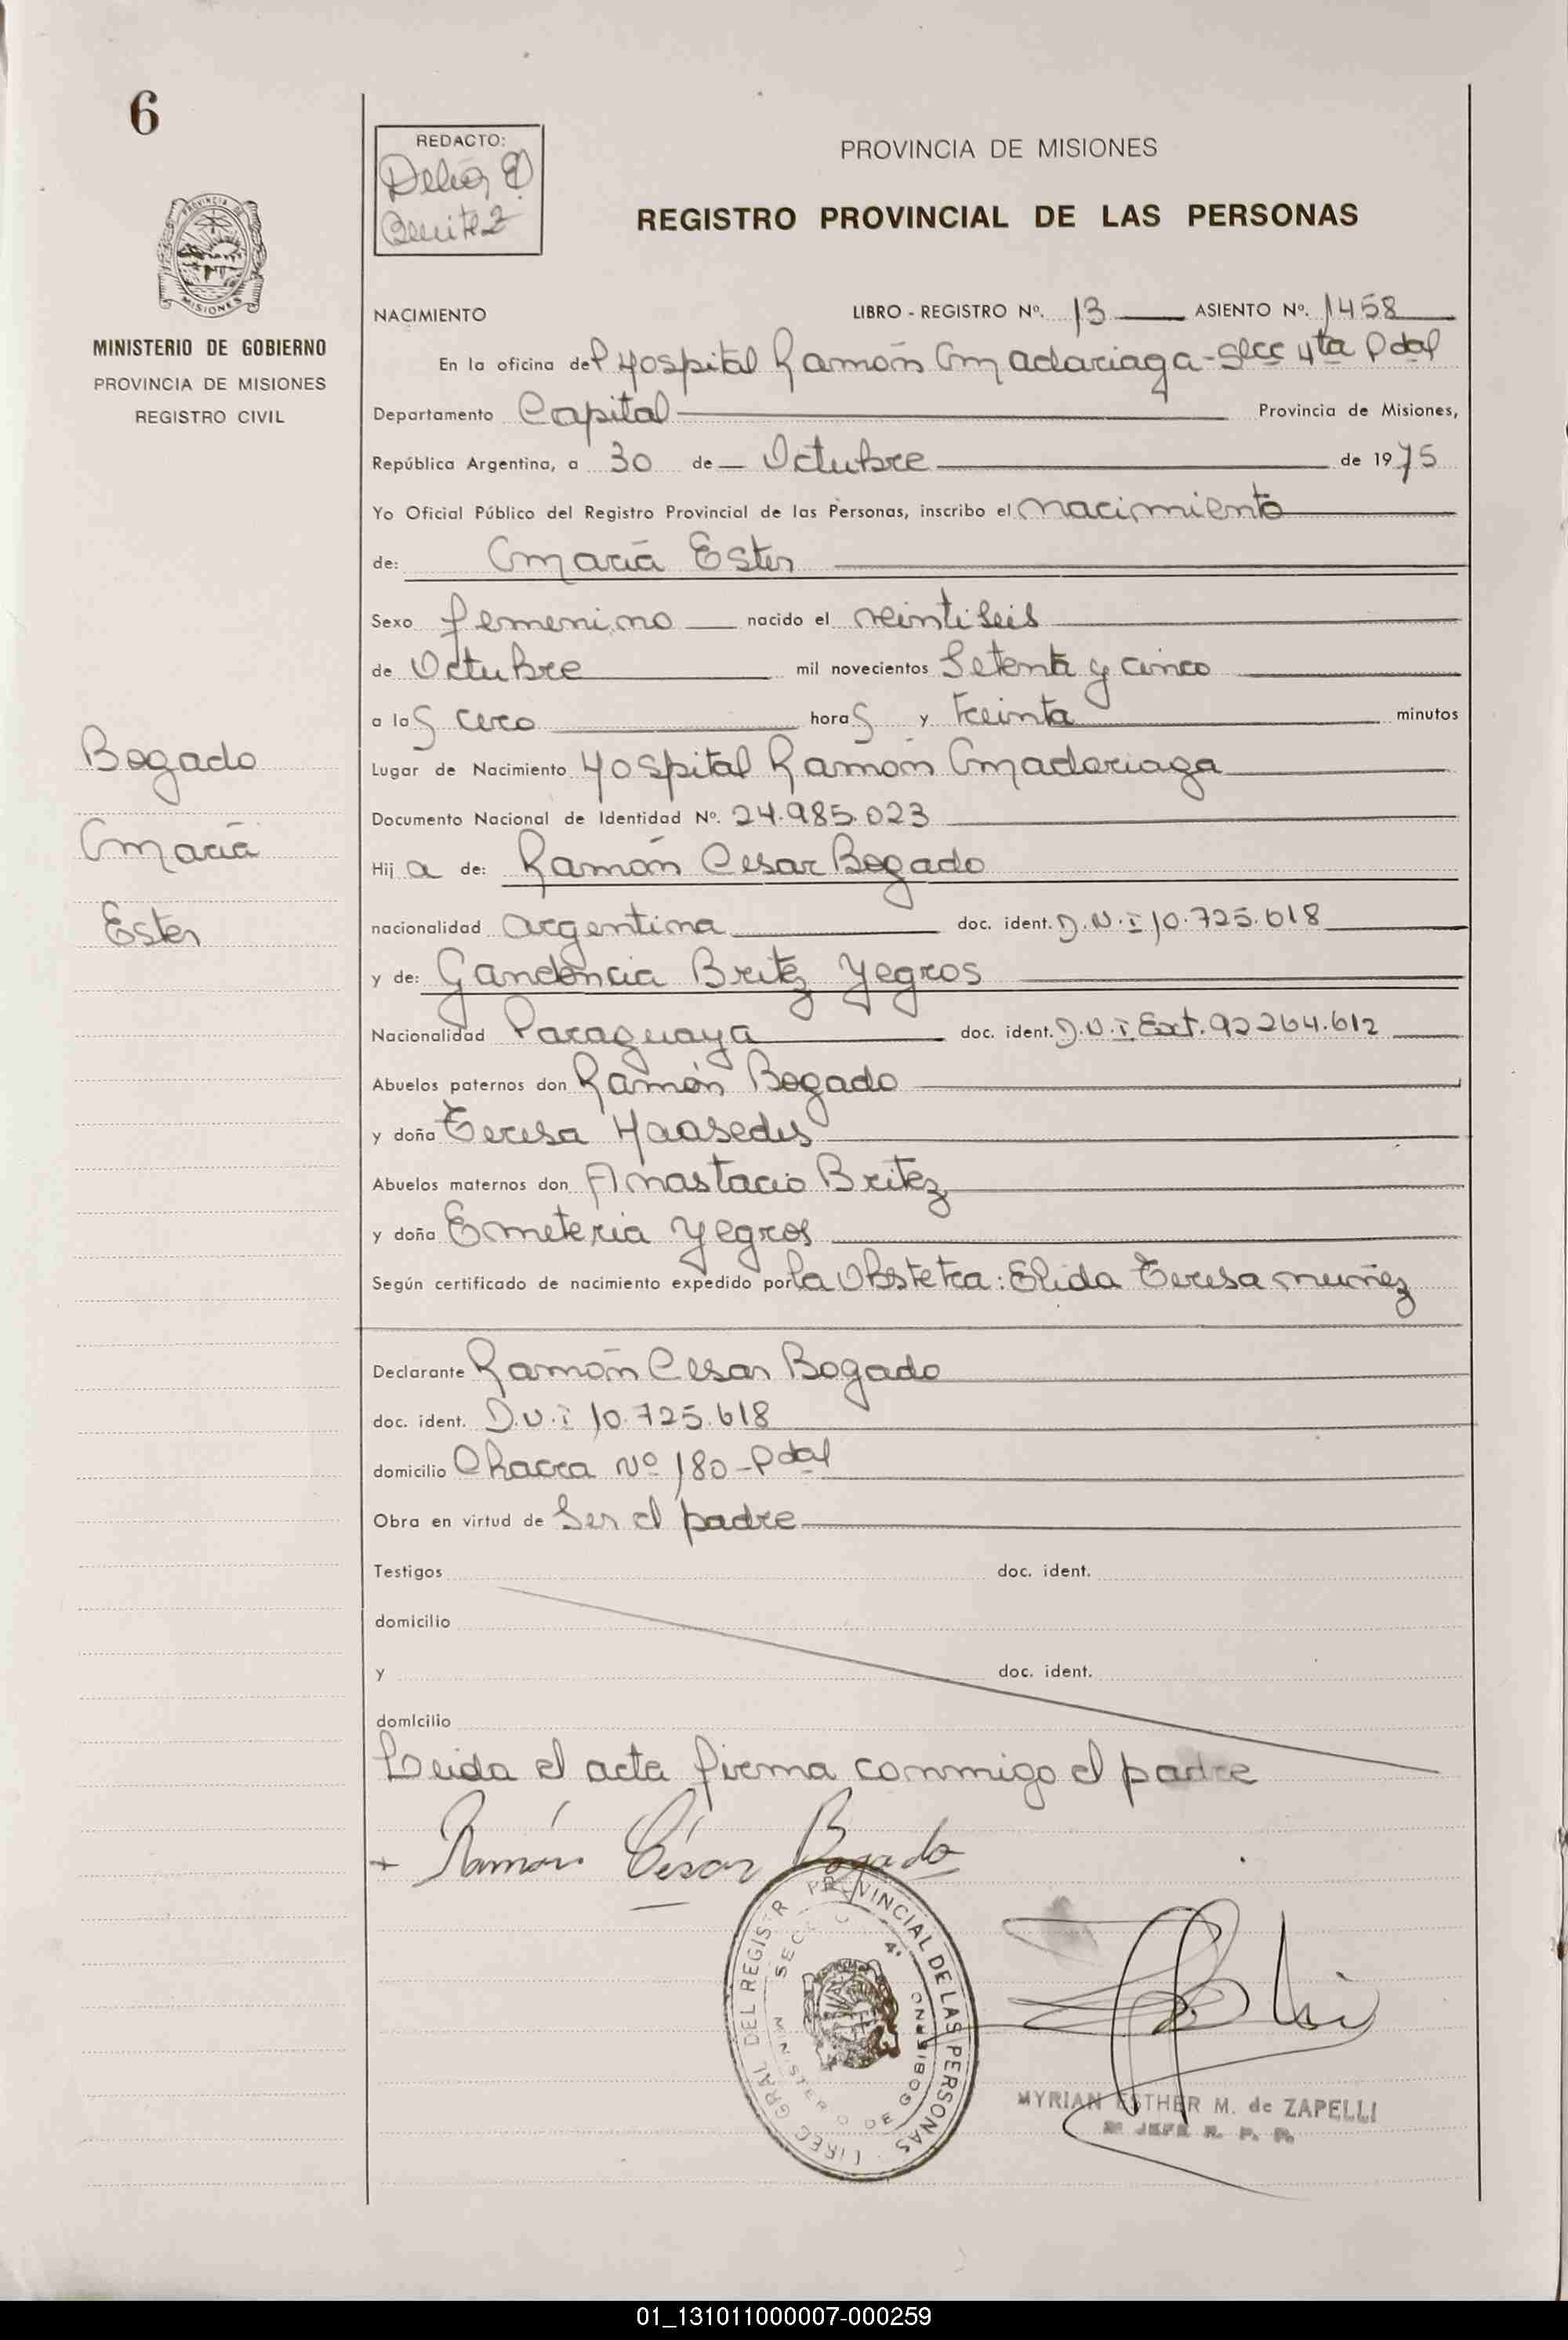 6
REDACTO:
Delia E
Benitez
PROVINCIA DE MISIONES
REGISTRO PROVINCIAL DE LAS PERSONAS
MISIONES
MINISTERIO DE GOBIERNO
PROVINCIA DE MISIONES
REGISTRO CIVIL
NACIMIENTO LIBRO - REGISTRO Nº. 13 ASIENTO Nº. 1458
En la oficina del Hospital Ramón Madariaga - Secc 4ta Pdal
Departamento Capital Provincia de Misiones,
República Argentina, a 30 de Octubre de 1975
Yo Oficial Público del Registro Provincial de las Personas, inscribo el nacimiento
de: María Ester
Sexo femenino nacido el veintiseis
de Octubre mil novecientos Setenta y cinco
a las cero horas y treinta minutos
Lugar de Nacimiento Hospital Ramón Madariaga
Documento Nacional de Identidad Nº. 24.985.023
Hija de: Ramón Cesar Bogado
nacionalidad argentina doc. ident. D.N.I 10.725.618
y de: Britez Yegros
Nacionalidad Paraguaya doc. ident. D.N.I Ext. 92264.612
Abuelos paternos don Ramón Bogado
y doña Teresa
Abuelos maternos don Anastacio Britez
y doña Emeteria Yegros
Según certificado de nacimiento expedido por la Obstetra: Elida Teresa Muñez
Bogado
María
Ester
Declarante Ramón Cesar Bogado
doc. ident. D.N.I 10.725.618
domicilio Chacra Nº 180 - Pdal
Obra en virtud de Ser el padre
Testigos doc. ident.
domicilio
y doc. ident.
domicilio
Leida el acta firma conmigo el padre
Ramón César Bogado
DIREC GRAL DEL REGISTR PROVINCIAL DE LAS PERSONAS
SECC 4ª
MINISTERIO DE GOBIERNO
MYRIAN ESTHER M. de ZAPELLI
JEFE R. P. P.
01_131011000007-000259